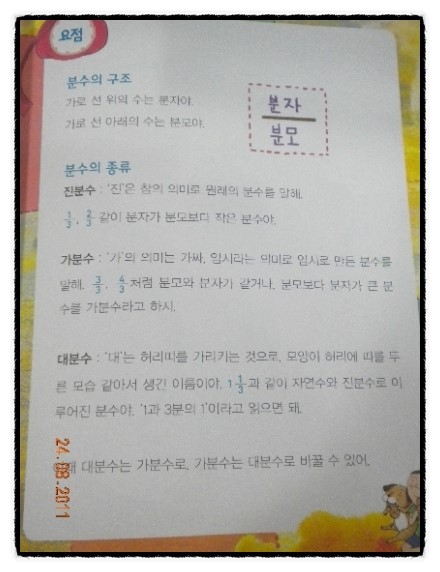 요점
분수의 구조
가로 선 위의 수는 분자야.
가로 선 아래의 수는 분모야.
분자
분모
분수의 종류
진분수 : '진'은 참의 의미로 원래의 분수를 말해.
1/3, 2/3 같이 분자가 분모보다 작은 분수야.
가분수 : '가'의 의미는 가짜, 임시라는 의미로 임시로 만든 분수를
말해. 3/3, 4/3처럼 분모와 분자가 같거나, 분모보다 분자가 큰 분
수를 가분수라고 하지.
대분수 : '대'는 허리띠를 가리키는 것으로, 모양이 허리에 띠를 두
른 모습 같아서 생긴 이름이야. 1 1/3과 같이 자연수와 진분수로 이
루어진 분수야. '1과 3분의 1'이라고 읽으면 돼.
대분수는 가분수로, 가분수는 대분수로 바꿀 수 있어.
24.08.2011